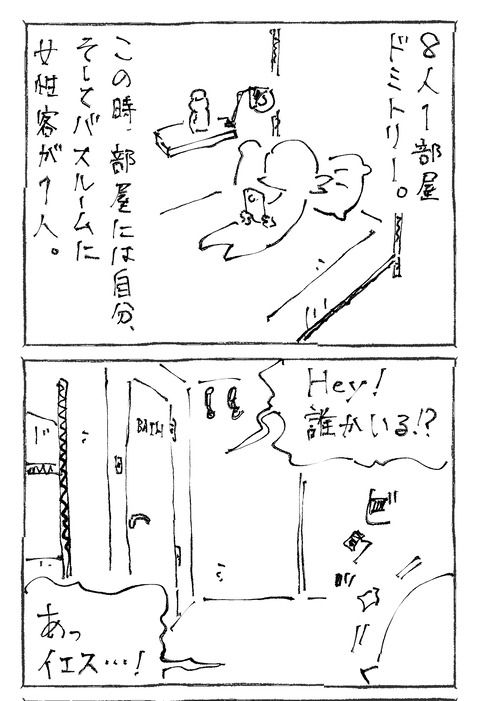 8人1部屋
ドミトリー。
この時、部屋には自分、
そしてバスルームに
女性客が1人。
Hey!
誰かいる!?
BATH
ビ
ド
あっ
イエス…!